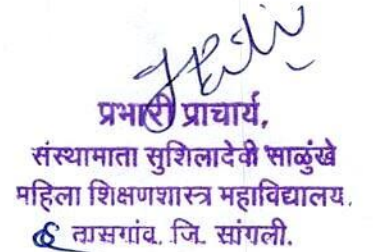 प्रभारी प्राचार्य,
संस्थामाता सुशिलादेवी साळुंखे
महिला शिक्षणशास्त्र महाविद्यालय.
तासगांव. जि. सांगली.